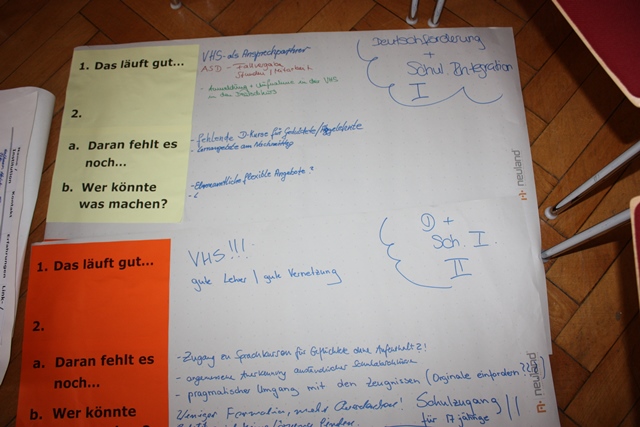 1. Das läuft gut...
VHS - als Ansprechpartner
ASD - Fallvergabe
Stunden / Mitarbeit
- Anmeldung + Aufnahme in der VHS
in den Deutschkurs
Deutschförderung
+
Schul Integration
I
2.
a. Daran fehlt es
noch...
- fehlende D-Kurse für Geduldete/
- Lernangebote am Nachmittag
b. Wer könnte
was machen?
- Ehrenamtliche flexible Angebote?
neuland
1. Das läuft gut...
VHS!!!
gute Lehrer / gute Vernetzung
D +
Sch. I.
II
2.
a. Daran fehlt es
noch...
- Zugang zu Sprachkursen für Geflüchtete ohne Aufenthalt!
- Anerkennung ausländischer Schulabschlüsse
- pragmatischer Umgang mit den Zeugnissen (Orginale einfordern??)
b. Wer könnte
Weniger Formalien, mehr
Schulzugang
für 17 jährige
neuland